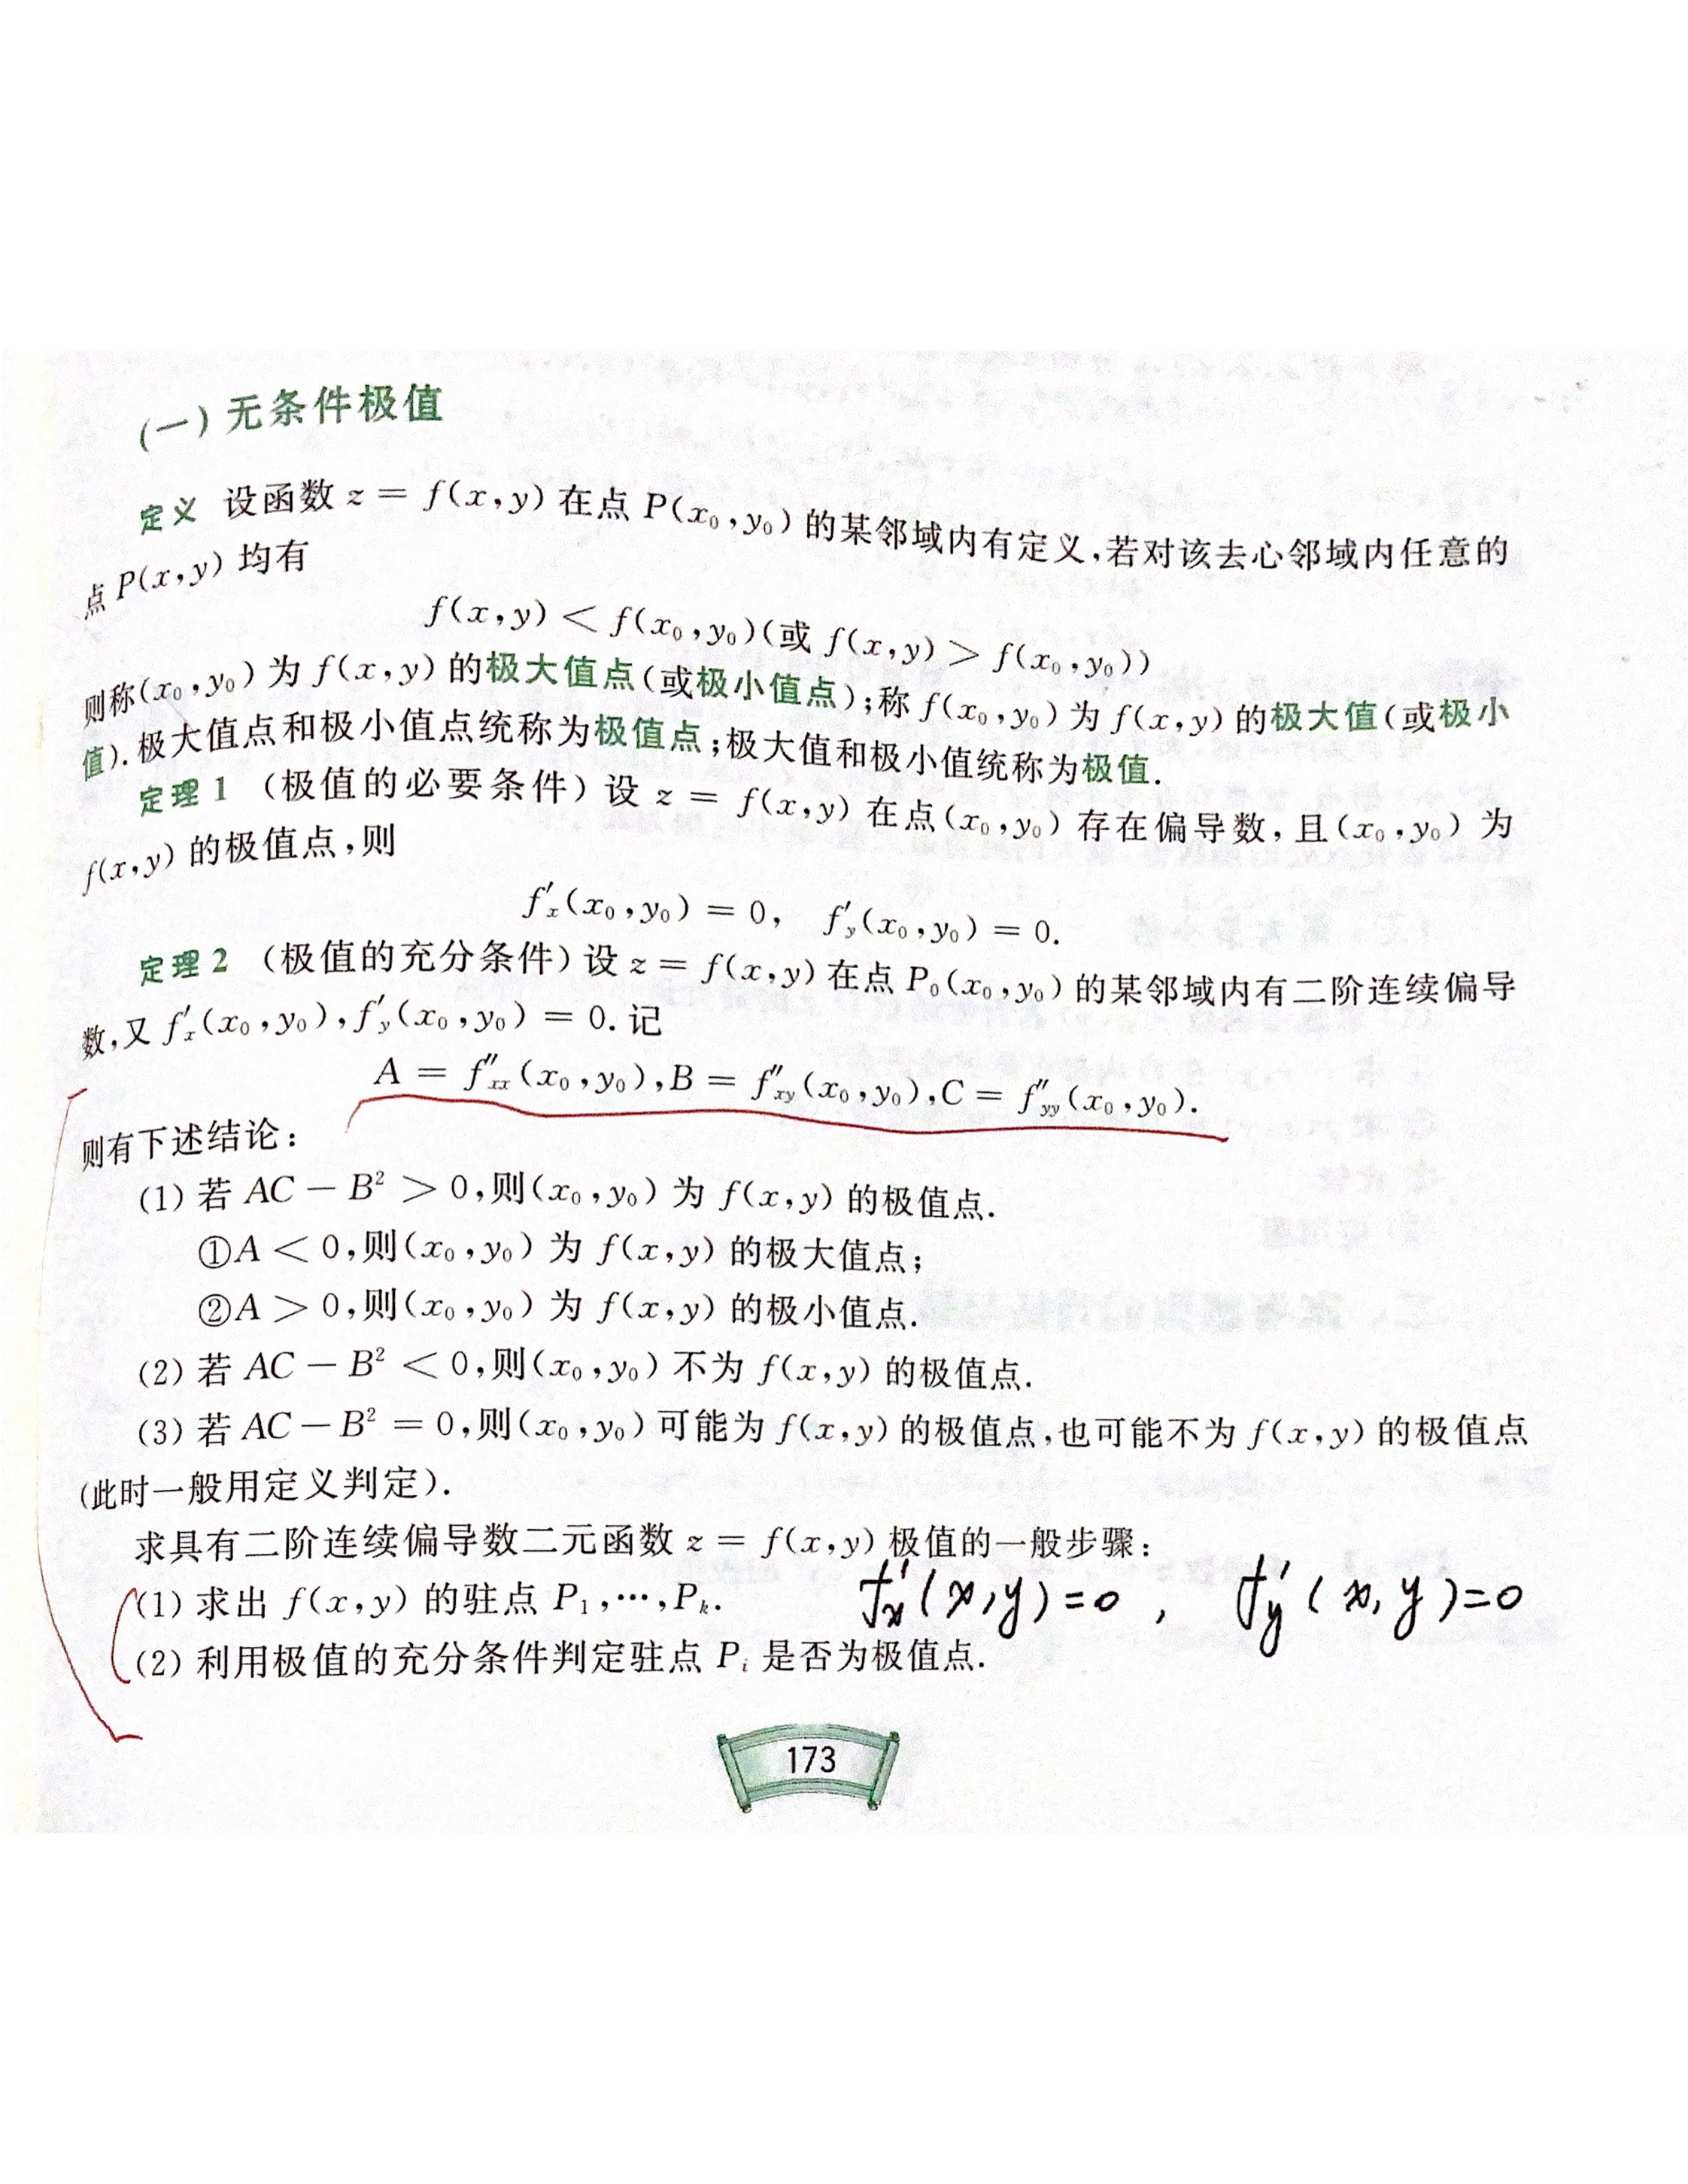 (一)无条件极值
定义 设函数 z = f(x,y) 在点 P(x₀,y₀) 的某邻域内有定义,若对该去心邻域内任意的
点 P(x,y) 均有
f(x,y) < f(x₀,y₀)(或 f(x,y) > f(x₀,y₀))
则称(x₀,y₀) 为 f(x,y) 的极大值点(或极小值点);称 f(x₀,y₀) 为 f(x,y) 的极大值(或极小
值).极大值点和极小值点统称为极值点;极大值和极小值统称为极值.
定理 1 (极值的必要条件) 设 z = f(x,y) 在点(x₀,y₀) 存在偏导数,且(x₀,y₀) 为
f(x,y) 的极值点,则
f′ₓ(x₀,y₀) = 0, f′_y(x₀,y₀) = 0.
定理 2 (极值的充分条件) 设 z = f(x,y) 在点 P₀(x₀,y₀) 的某邻域内有二阶连续偏导
数,又 f′ₓ(x₀,y₀),f′_y(x₀,y₀) = 0. 记
A = f″ₓₓ(x₀,y₀),B = f″_xy(x₀,y₀),C = f″_yy(x₀,y₀).
则有下述结论:
(1) 若 AC − B² > 0,则(x₀,y₀) 为 f(x,y) 的极值点.
①A < 0,则(x₀,y₀) 为 f(x,y) 的极大值点;
②A > 0,则(x₀,y₀) 为 f(x,y) 的极小值点.
(2) 若 AC − B² < 0,则(x₀,y₀) 不为 f(x,y) 的极值点.
(3) 若 AC − B² = 0,则(x₀,y₀) 可能为 f(x,y) 的极值点,也可能不为 f(x,y) 的极值点
(此时一般用定义判定).
求具有二阶连续偏导数二元函数 z = f(x,y) 极值的一般步骤:
(1) 求出 f(x,y) 的驻点 P₁,…,Pₖ. f′ₓ(x,y)=0 , f′_y(x,y)=0
(2) 利用极值的充分条件判定驻点 Pᵢ 是否为极值点.
173